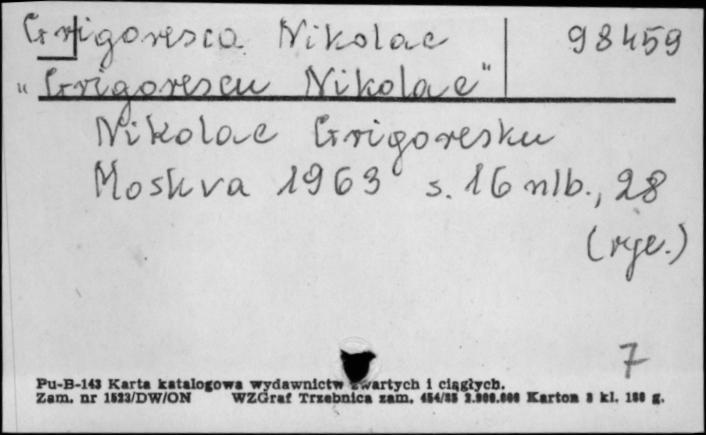 Grigoresco Nikolae 98459
"Grigorescu Nikolae"
Nikolae Grigoresku
Moskva 1963 s. 16 nlb., 28
(ryc.)
7
Pu-B-143 Karta katalogowa wydawnictw zwartych i ciągłych.
Zam. nr 1523/DW/ON WZGraf Trzebnica zam. 454/85 2.000.000 Karton 3 kl. 180 g.